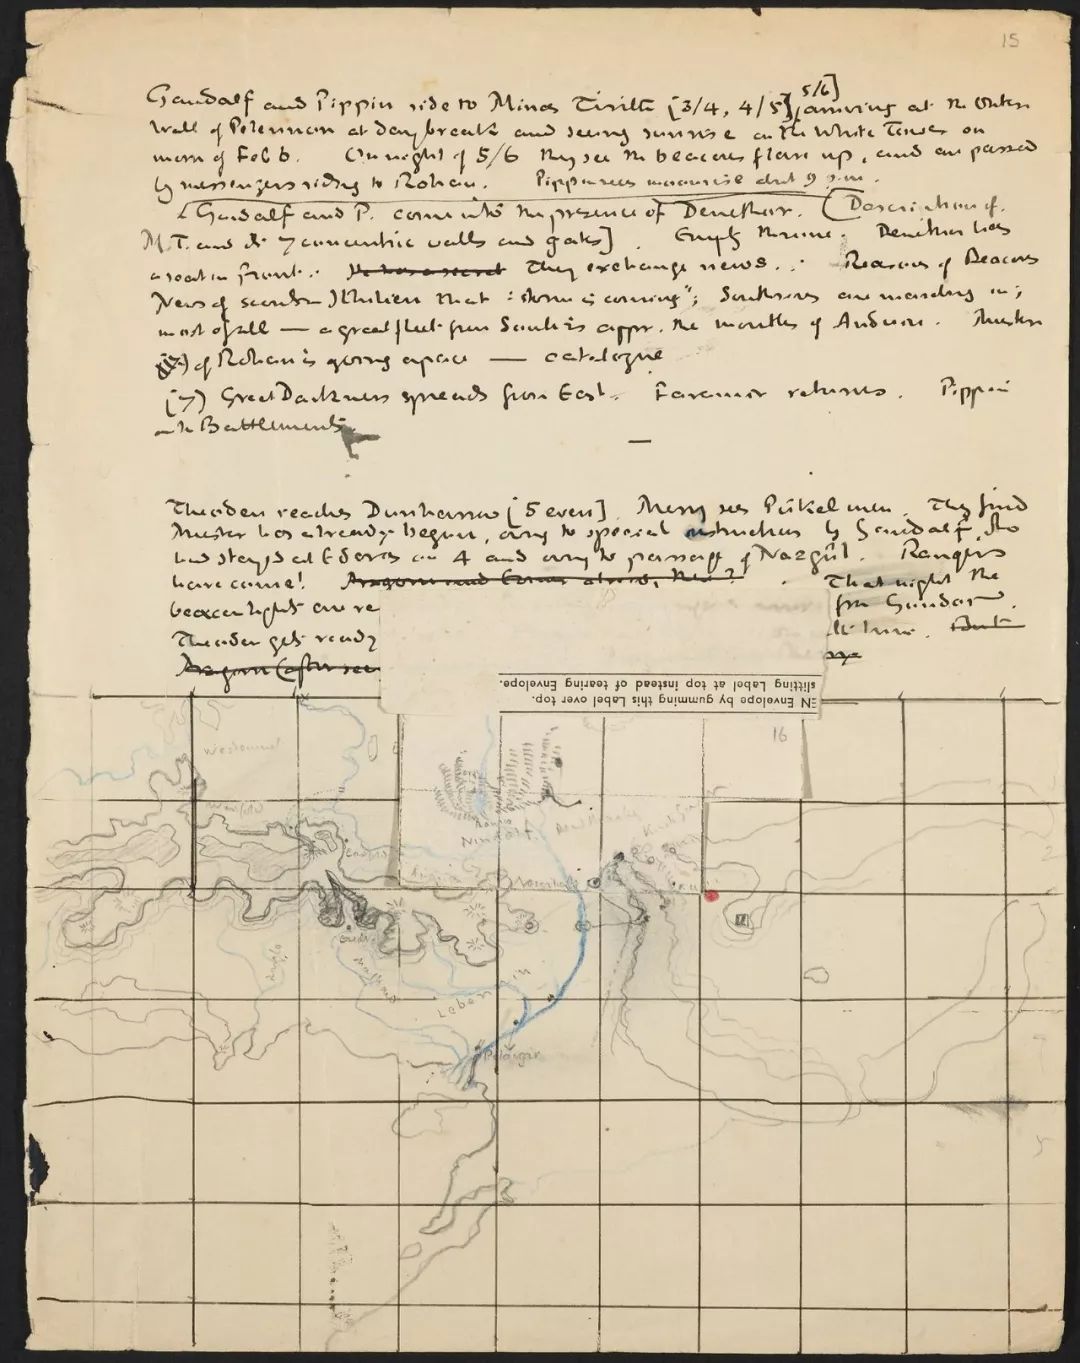 15
Gandalf and Pippin ride to Minas Tirith [3/4, 4/5, 5/6] arriving at the outer
wall of Pelennor at daybreak and seeing sunrise on the White Tower on
morn of Feb 6. On night of 5/6 they see the beacons flare up, and are passed
by messengers riding to Rohan. Pippin sees moonrise abt 9 p.m.
[Gandalf and P. come into the presence of Denethor. (Description of
M.T. and its 7 concentric walls and gates]. Empty throne. Denethor has
a seat in front. He has a secret They exchange news. Reasons of Beacons
News of scouts Ithilien that 'storm is coming'; Southrons are marching in;
most of all — a great fleet from South is appr. the mouths of Anduin. Muster
of Rohan is going apace — catalogue
(7) Great Darkness spreads from East. Faramir returns. Pippin
on the Battlements.
Theoden reaches Dunharrow [5 even]. Merry sees Púkel men. They find
Muster has already begun, owing to special instructions by Gandalf, who
had stayed at Edoras on 4 and owing to passage of Nazgûl. Rangers
have come! Aragorn and Eomer also, ? That night the
beacon lights are re from Gondor.
Theoden gets ready But
Aragorn (after see
EN Envelope by gumming this Label over top.
slitting Label at top instead of tearing Envelope.
16
Westemnet
Nindalf
Lebennin
Pelargir